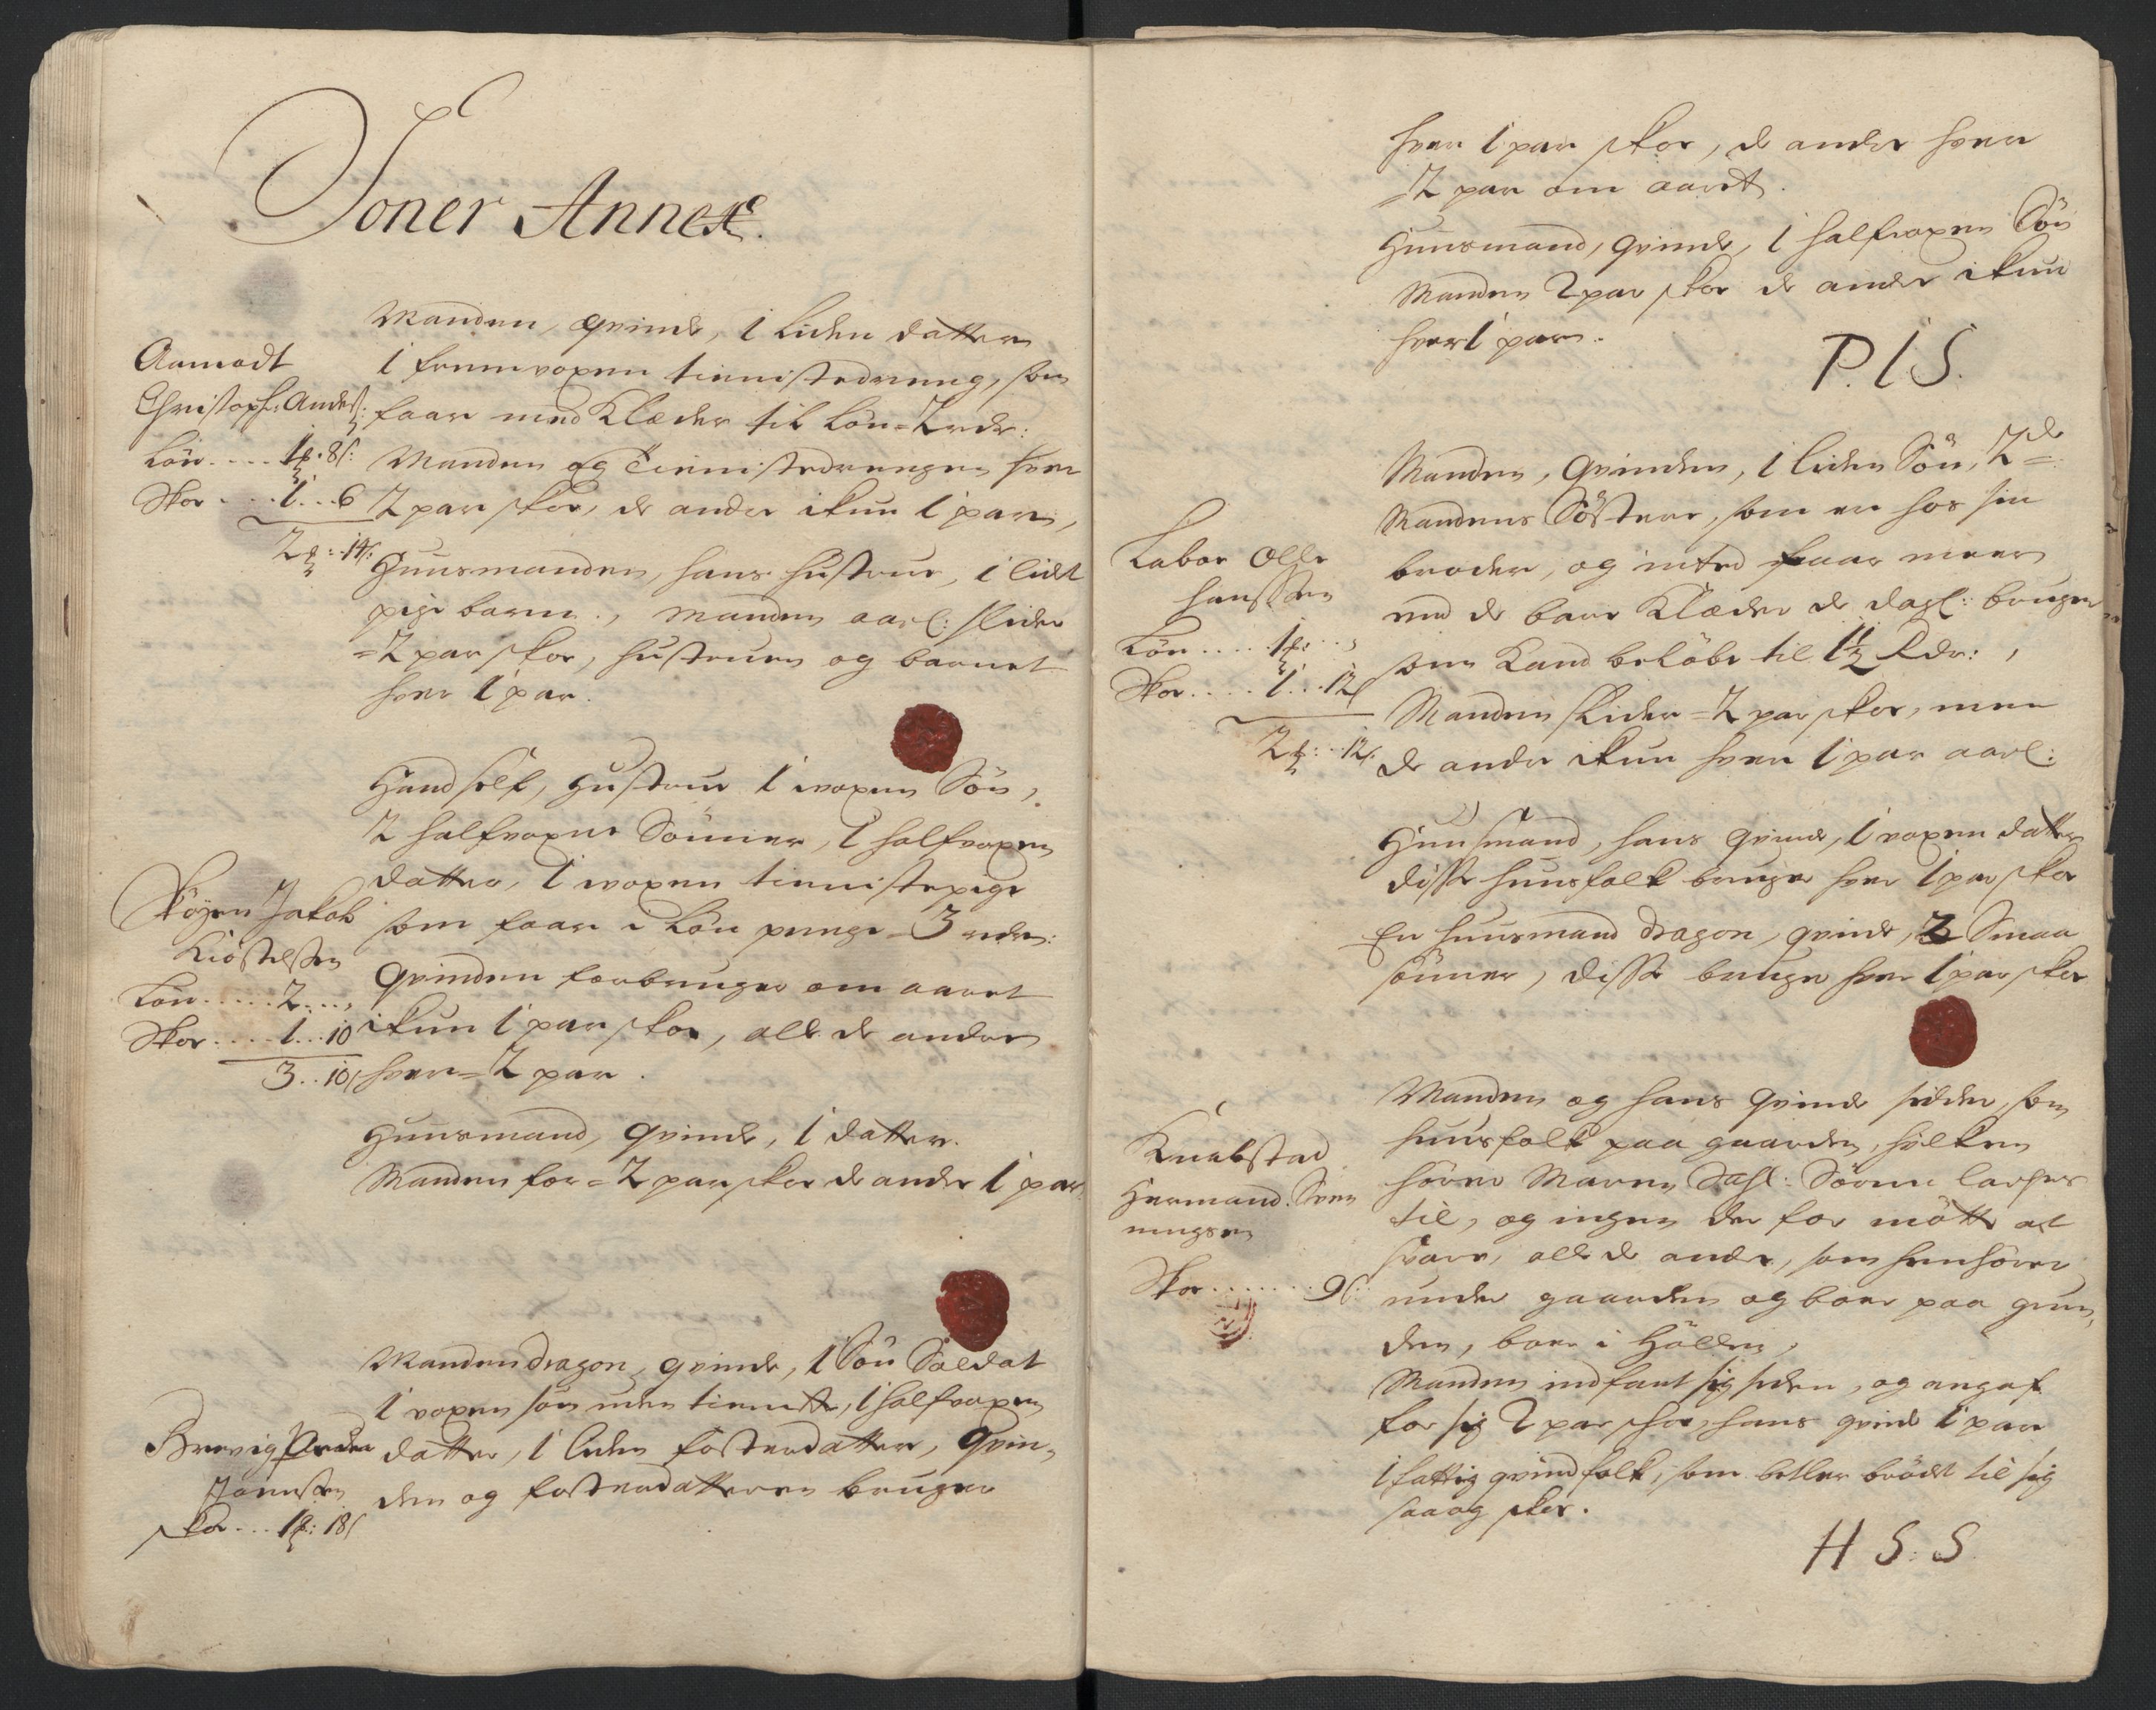 Soner Annex.
Aamodt
Christoph: Anders:
Lön .... 1 . 8 s:
Skor .... 1 .. 6
2 : 14 s:
Manden, qvinde, 1 Liden datter
1 fremvoxen tienistedreng, som
faar med Klæder til Lön = 2 rdr:
Manden og Tienistedrengen hver
2 par skor, de andre ikun 1 par,
Huusmanden, hans hustrue, 1 lidet
pige barn, manden aarl: slider
= 2 par skor, hustruen og barnet
hver 1 par.
Sköyen Jakob
Kiöstelsen
Lön ..... 2 ....
Skor .... 1 .. 10
3 .. 10 s
Hand self, Hustrue 1 voxen Sön,
2 halfvoxne Sönner, 1 halfvoxen
datter, 1 voxen tienistepige
som faar i Lön penge = 3 rdr:
Qvinden forbruger om aaret
ikun 1 par skor, alle de andre
hver = 2 par.
Huusmand, Qvinde, 1 datter.
Manden for = 2 par skor de andre 1 par
Brevig Peder
Jörensen
skor ... 1 : 18 s
Manden dragon, qvinde, 1 Sön Soldat
1 voxen sön uden tieniste, 1 halfvoxen
datter, 1 liden fosterdatter, Qvin-
den og fosterdatteren bruger
hver 1 par skor, de andre hver
= 2 par om aaret.
Huusmand, qvinde, 1 halfvoxen Sön
Manden 2 par skor de andre ikun
hver 1 par.
P. I S.
Labor Olle
hanssen
Lön ..... 1 ....
Skor ..... 1 ... 12 s
2 : 12 s.
Manden, Qvinden, 1 liden Sön, 2de
Mandens Söstere, som er hos sin
broder, og inted faar meer
end de bare Klæder de dagl: bruger
som Kand belöbe til 1½ Rdr:,
Manden slider = 2 par skor, men
de andre ikun hver 1 par aarl:
Huusmand, hans qvinde, 1 voxen datter
disse huusfolk bruger hver 1 par skor
En huusmand dragon, qvinde, 2 Smaa
sönner, disse bruger hver 1 par skor
Knabstad
Hermand Sven
ningsen
Skor ....... 9 s:
Manden og hans Qvinde sidder som
huusfolk paa gaarden, hvilken
hörer Maren Sahl: Sörren larses
til, og ingen der for mötte at
svare, alle de andre, som henhörer
under gaarden og boer paa grun-
den, boer i Höllen,
Manden indfant sig siden, og angaf
for sig 2 par skor, hans qvinde 1 par
1 fattig qvindfolk, som betler brödet til sig
saa og skor.
H S. S